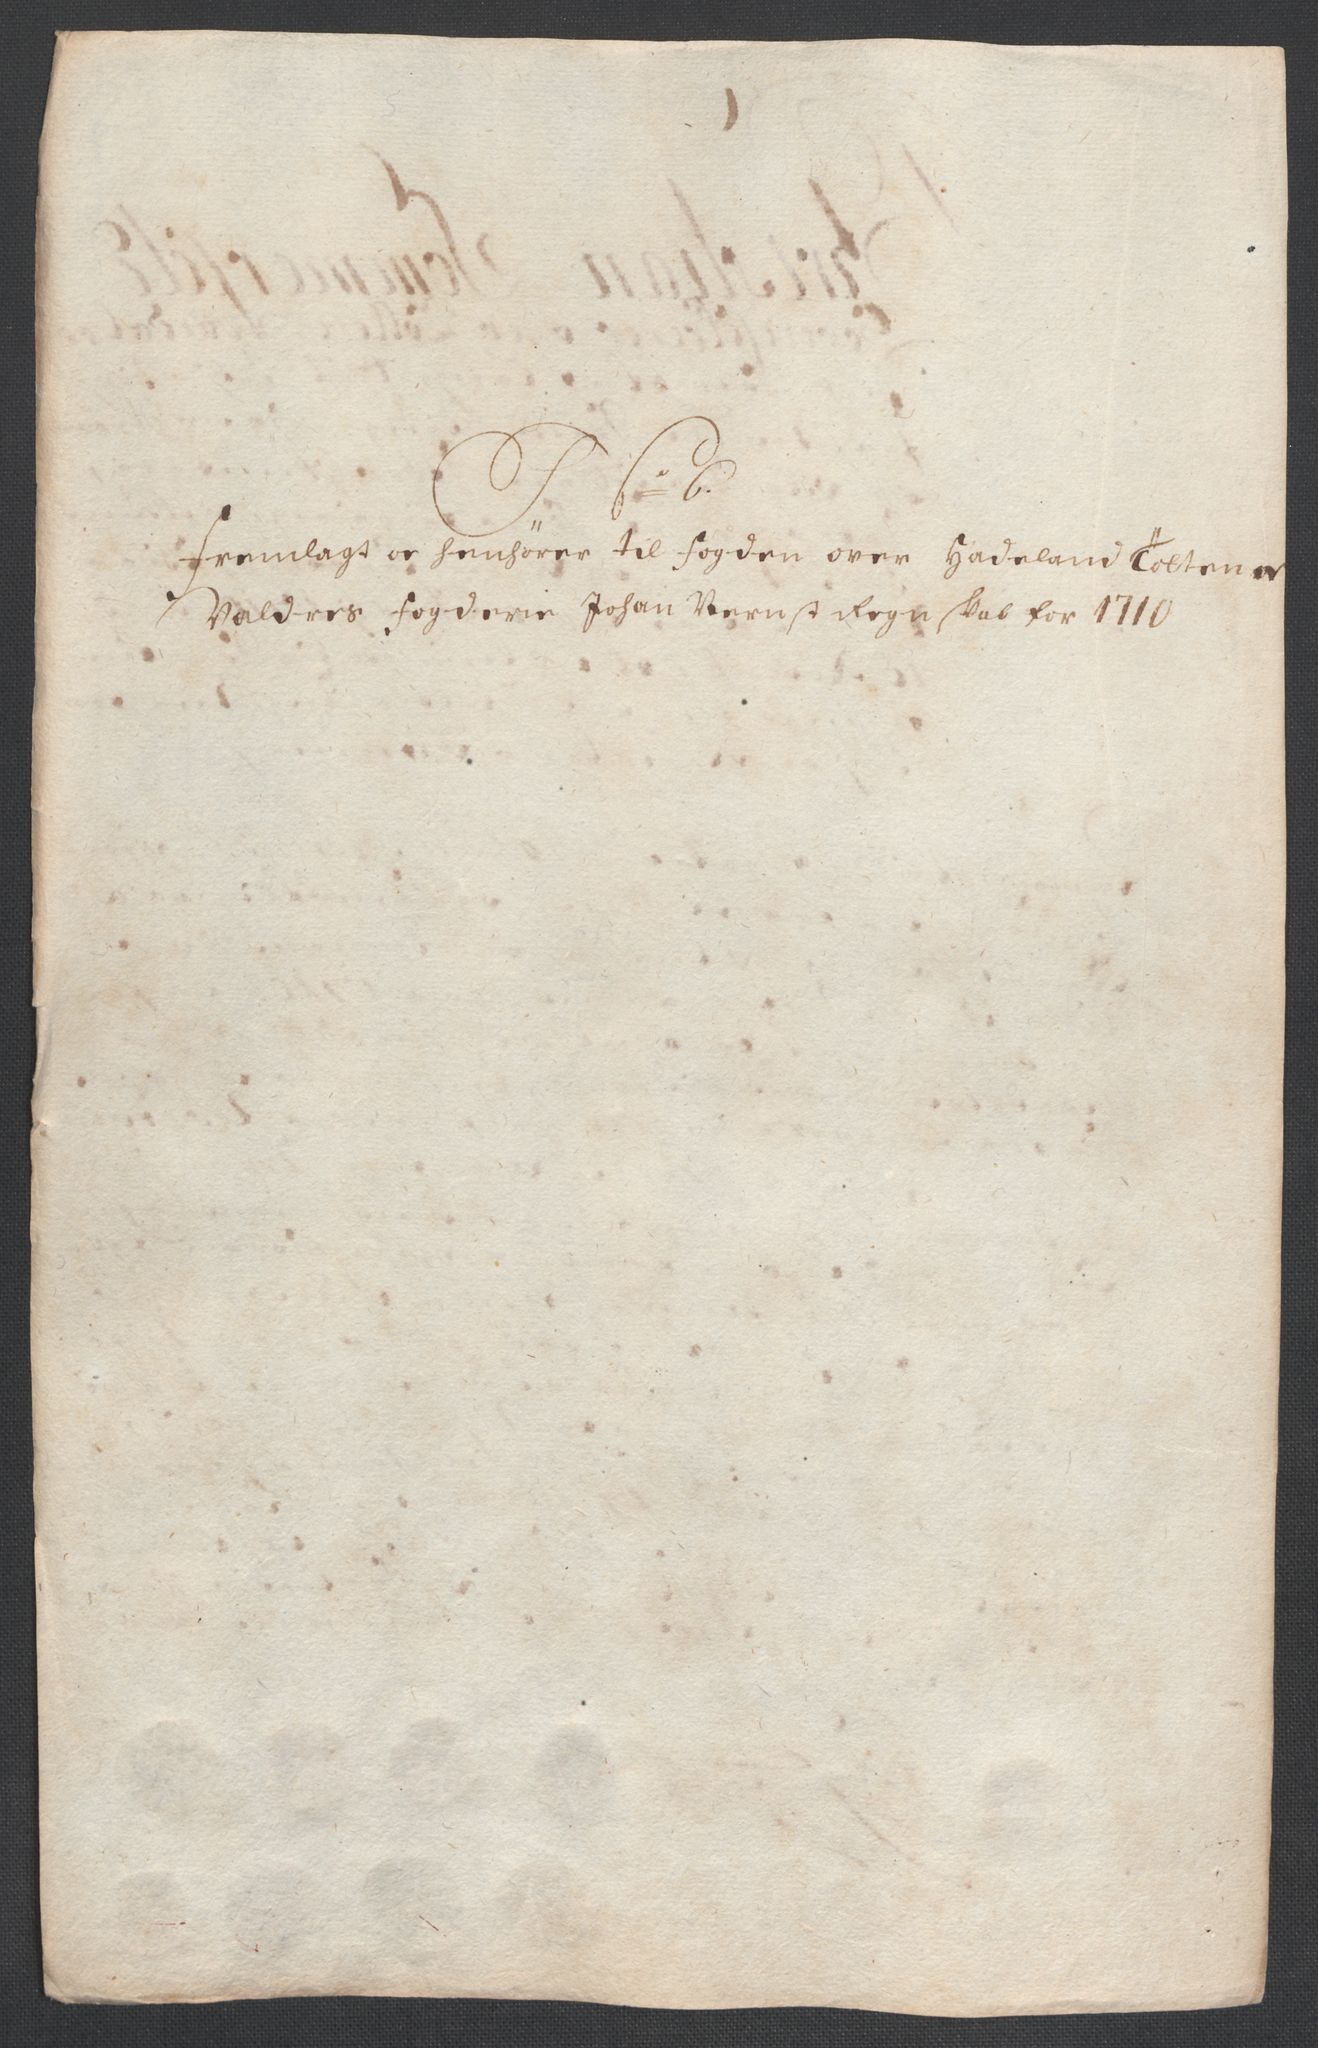 No 6.
Fremlagt oc henhörer til fogden over Hadeland Tolten oc
Valdres fogderie Johan Vernst Regnskab for 1710